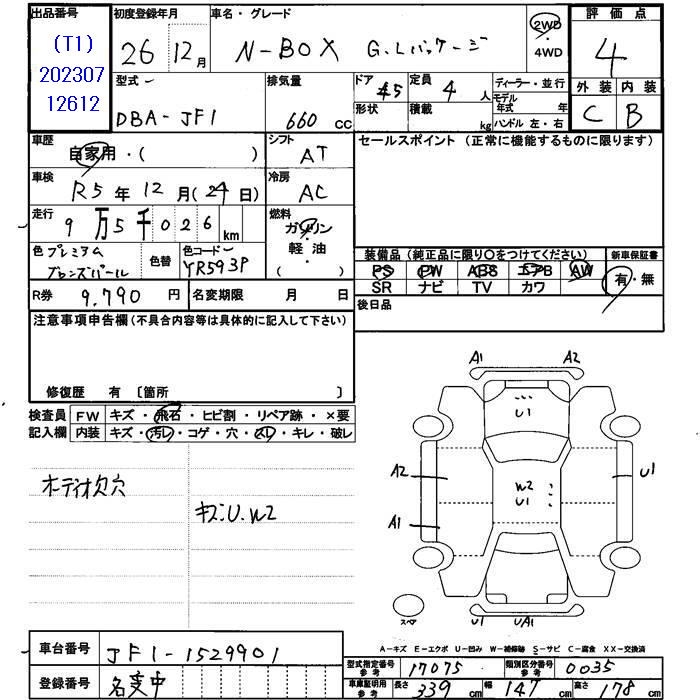 出品番号 初度登録年月 車名・グレード 評価点
(T1)
202307
12612
26 12月 N-BOX G.Lパッケージ 2WD
・
4WD
4
外装 内装
C B
型式 排気量 ドア 定員 ディーラー・並行
DBA-JF1 660 CC 45 4 人
形状 積載 kg
モデル年式 年
ハンドル 左・右
車歴 シフト セールスポイント (正常に機能するものに限ります)
自家用・( ) AT
車検 冷房
R5年12月(24日) AC
走行 燃料
9万5千026km ガソリン
軽・油
( )
色 プレミアム
ブロンズパール
色替 色コード
YR593P
装備品(純正品に限り○をつけてください) 新車保証書
PS PW ABS エアB AW 有・無
SR ナビ TV カワ
R券 9,790 円 名変期限 月 日
後日品
注意事項申告欄(不具合内容等は具体的に記入して下さい)
修復歴 有 〔箇所 〕
検査員 FW キズ・飛石・ヒビ割・リペア跡・×要
記入欄 内装 キズ・汚レ・コゲ・穴・スレ・キレ・破レ
オーディオ欠穴
キズ.U.W2
A1 A2
U1
A2 W2
U1 U1
A1
スペア U1 UA1
A-キズ E-エクボ U-凹み W-補修跡 S-サビ C-腐食 XX-交換済
車台番号 JF1-1529901
登録番号 名変中
型式指定番号
参考 17075 類別区分番号
参考 0035
車庫証明用
参考 長さ 339 cm 幅 147 cm 高さ 178 cm